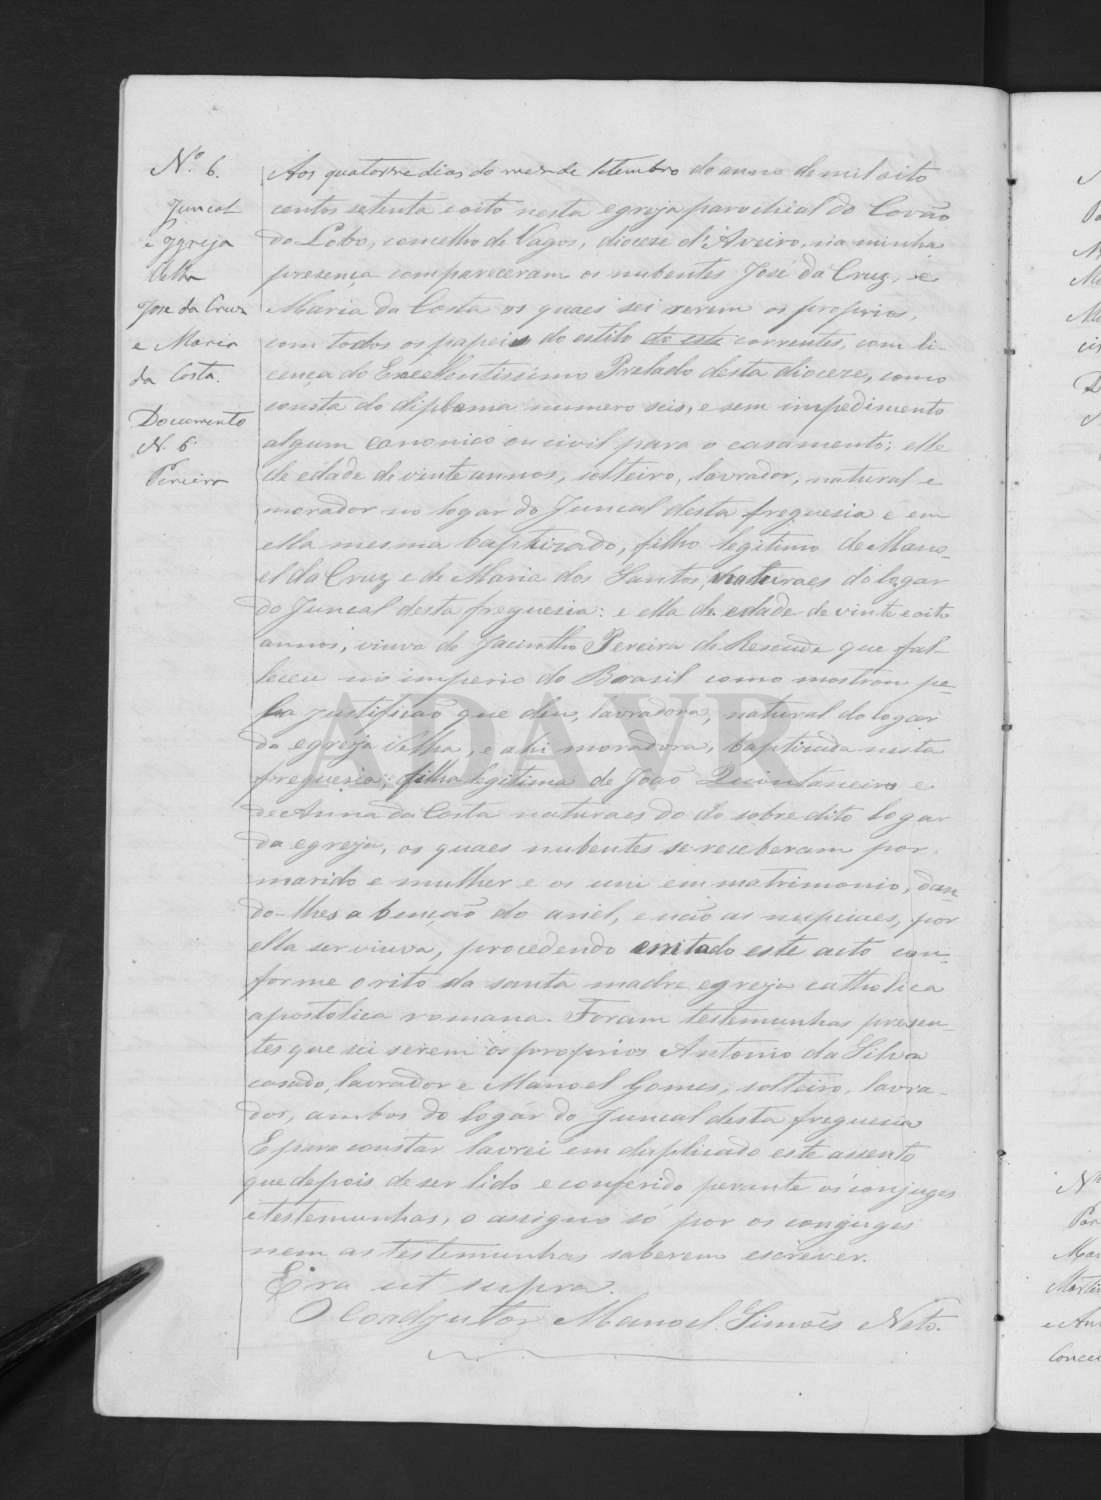 Nº 6.
Juncal
e Igreja
Velha
José da Cruz
e Maria
da Costa.
Documento
N. 6
Pereira
Aos quatorze dias do mez de Setembro do anno de mil oito
centos setenta e oito nesta egreja parochial do Covão
do Lobo, concelho de Vagos, diocese d'Aveiro, na minha
presença compareceram os nubentes José da Cruz, e
Maria da Costa os quaes sei serem os proprios,
com todos os papeis do estilo correntes, com li-
cença do Excellentissimo Prelado desta diocese, como
consta do diploma numero seis, e sem impedimento
algum canonico ou civil para o casamento; elle
de edade de vinte annos, solteiro, lavrador, natural e
morador no logar do Juncal desta freguesia e em
ella mesma baptizado, filho legitimo de Mano-
el da Cruz e de Maria dos Santos, naturaes do logar
do Juncal desta freguesia: e ella de edade de vinte e oito
annos, viuva de Jacintho Pereira de Resende que fal-
leceu no imperio do Brasil como mostrou pe-
la justificaõ que deu, lavradora, natural do logar
da egreja Velha, e ahi moradora, baptizada nesta
freguesia; filha legitima de João Quintaneiro e
de Anna da Costa naturaes do do sobredito logar
da egreja, os quaes nubentes se receberam por
marido e mulher e os uni em matrimonio, dan-
do-lhes a benção do anel, e não as nupciaes, por
ella ser viuva, procedendo em todo este acto con-
forme o rito da santa madre egreja catholica
apostolica romana. Foram testemunhas presen-
tes que sei serem os proprios Antonio da Silva
casado, lavrador e Manoel Gomes, solteiro, lavra-
dor, ambos do logar do Juncal desta freguesia
E para constar lavrei em duplicado este assento
que depois de ser lido e conferido perante os conjuges
e testemunhas, o assigno só por os conjuges
nem as testemunhas saberem escrever.
Era ut supra.
O Coadjutor Manoel Simões Neto.
ADAVR
Nº
Par
Mar
Martin
e An
Concei